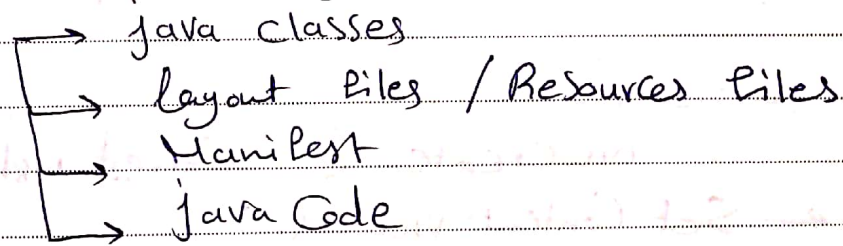 java classes
layout files / Resources files
Manifest
java Code